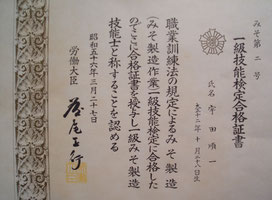 みそ第二号
一級技能検定合格証書
氏名 宇田順一
職業訓練法の規定によるみそ製造
(みそ製造作業)一級技能検定に合格した
のでここに合格証書を授与し一級みそ製造
技能士と称することを認める
昭和五十六年三月二十七日
労働大臣